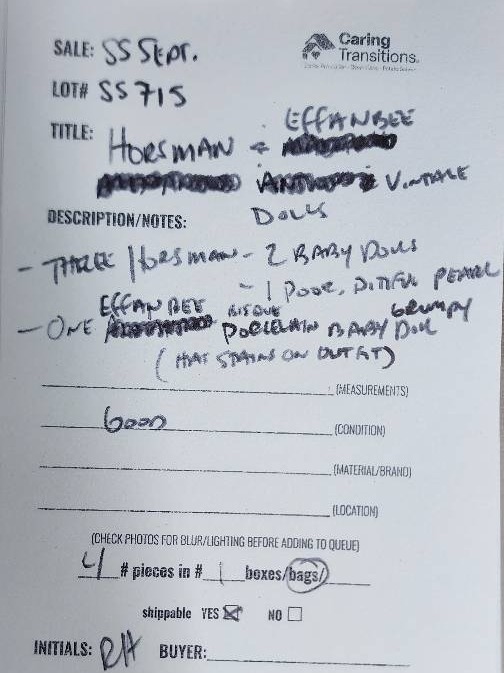 SALE: SS SEPT.
Caring
Transitions
LOT# SS 715
EFFANBEE
TITLE: HORSMAN &
VINTAGE
DOLLS
DESCRIPTION/NOTES:
- THREE HORSMAN - 2 BABY DOLLS
- 1 POOR, PITIFUL PEARL
EFFANBEE BISQUE GRUMPY
- ONE PORCELAIN BABY DOLL
(HAS STAINS ON OUTFIT)
(MEASUREMENTS)
GOOD (CONDITION)
(MATERIAL/BRAND)
(LOCATION)
(CHECK PHOTOS FOR BLUR/LIGHTING BEFORE ADDING TO QUEUE)
4 # pieces in # 1 boxes/bags/
shippable YES NO
INITIALS: RH BUYER: